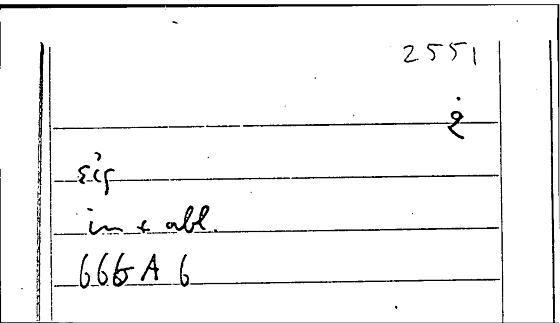 2551
في
εἰς
in c abl.
665 A 6